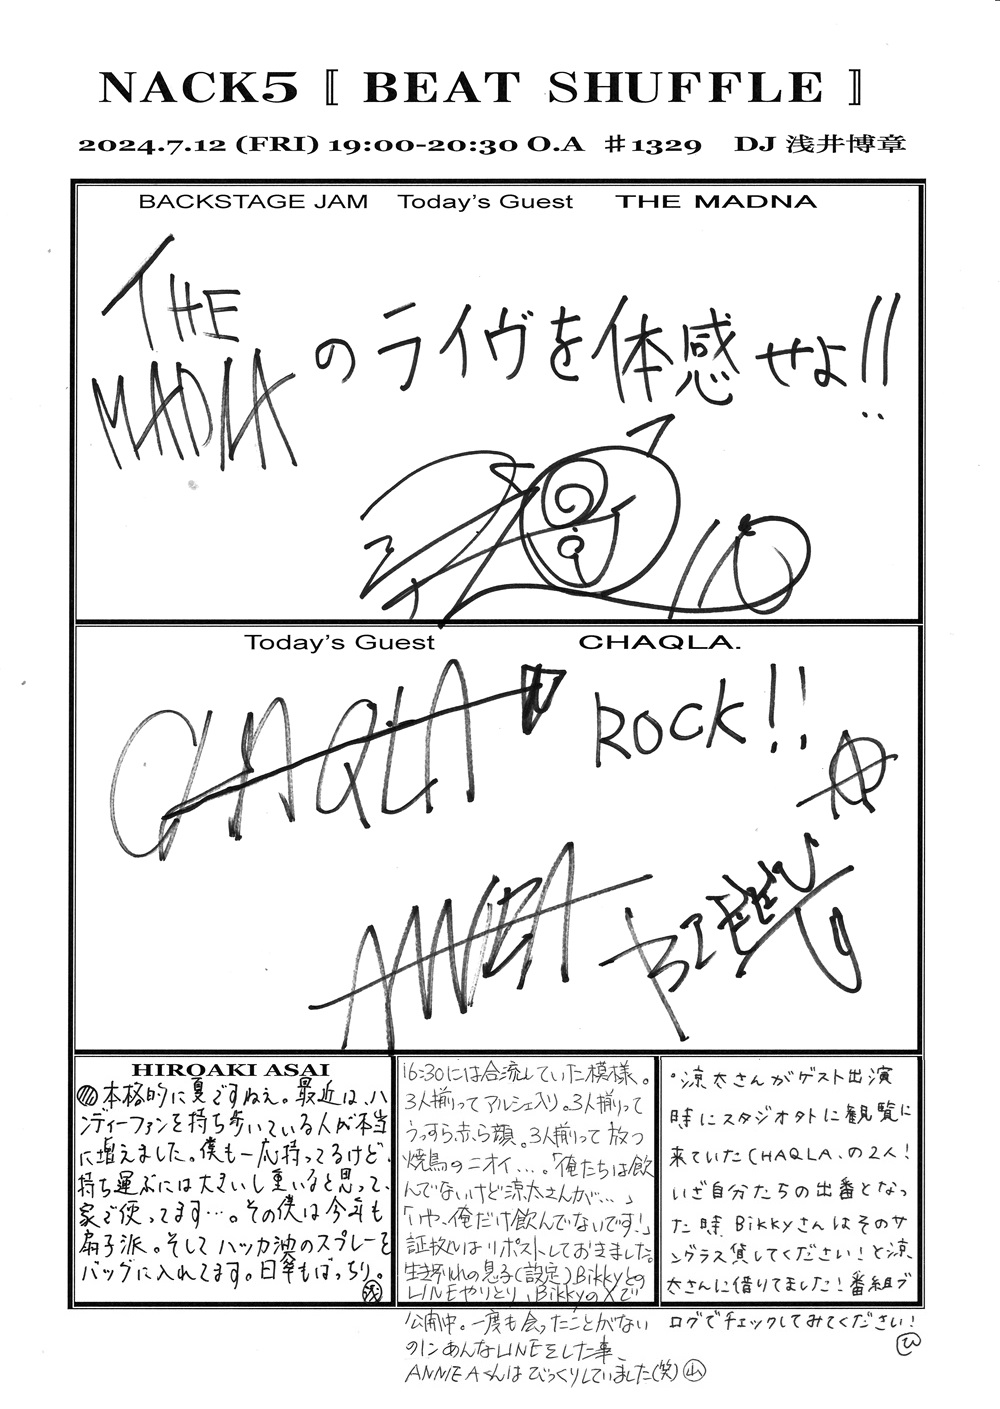 NACK5 〚 BEAT SHUFFLE 〛
2024.7.12 (FRI) 19:00-20:30 O.A ♯1329 DJ 浅井博章
BACKSTAGE JAM Today's Guest THE MADNA
THE
MADNA のライヴを体感せよ!!
Today's Guest CHAQLA.
CHAQLA ROCK!!
ANNIE A
HIROAKI ASAI
本格的に夏ですねぇ。最近は、ハ
ンディーファンを持ち歩いている人が本当
に増えました。僕も一応持ってるけど、
持ち運ぶには大きいし重いなと思って、
家で使ってます…。その僕は今年も
扇子派。そしてハッカ油のスプレーを
バッグに入れてます。日傘もばっちり。浅
16:30には合流していた模様。
3人揃ってアルシェ入り。3人揃って
うっすら赤ら顔。3人揃って放つ
焼鳥のニオイ…。「俺たちは飲
んでないけど涼太さんが…」
「いや、俺だけ飲んでないです!」
証拠はリポストしておきました。
生き別れの息子(設定)Bikkyとの
LINEやりとり、BikkyのXで
公開中。一度も会ったことがない
のにあんなLINEをした事、
ANNIE Aくんはびっくりしていました(笑) 山
・涼太さんがゲスト出演
時にスタジオ外に観覧に
来ていたCHAQLA.の2人!
いざ自分たちの出番となっ
た時、Bikkyさんはそのサ
ングラス貸してください!と涼
太さんに借りてました!番組ブ
ログでチェックしてみてください!
ひ